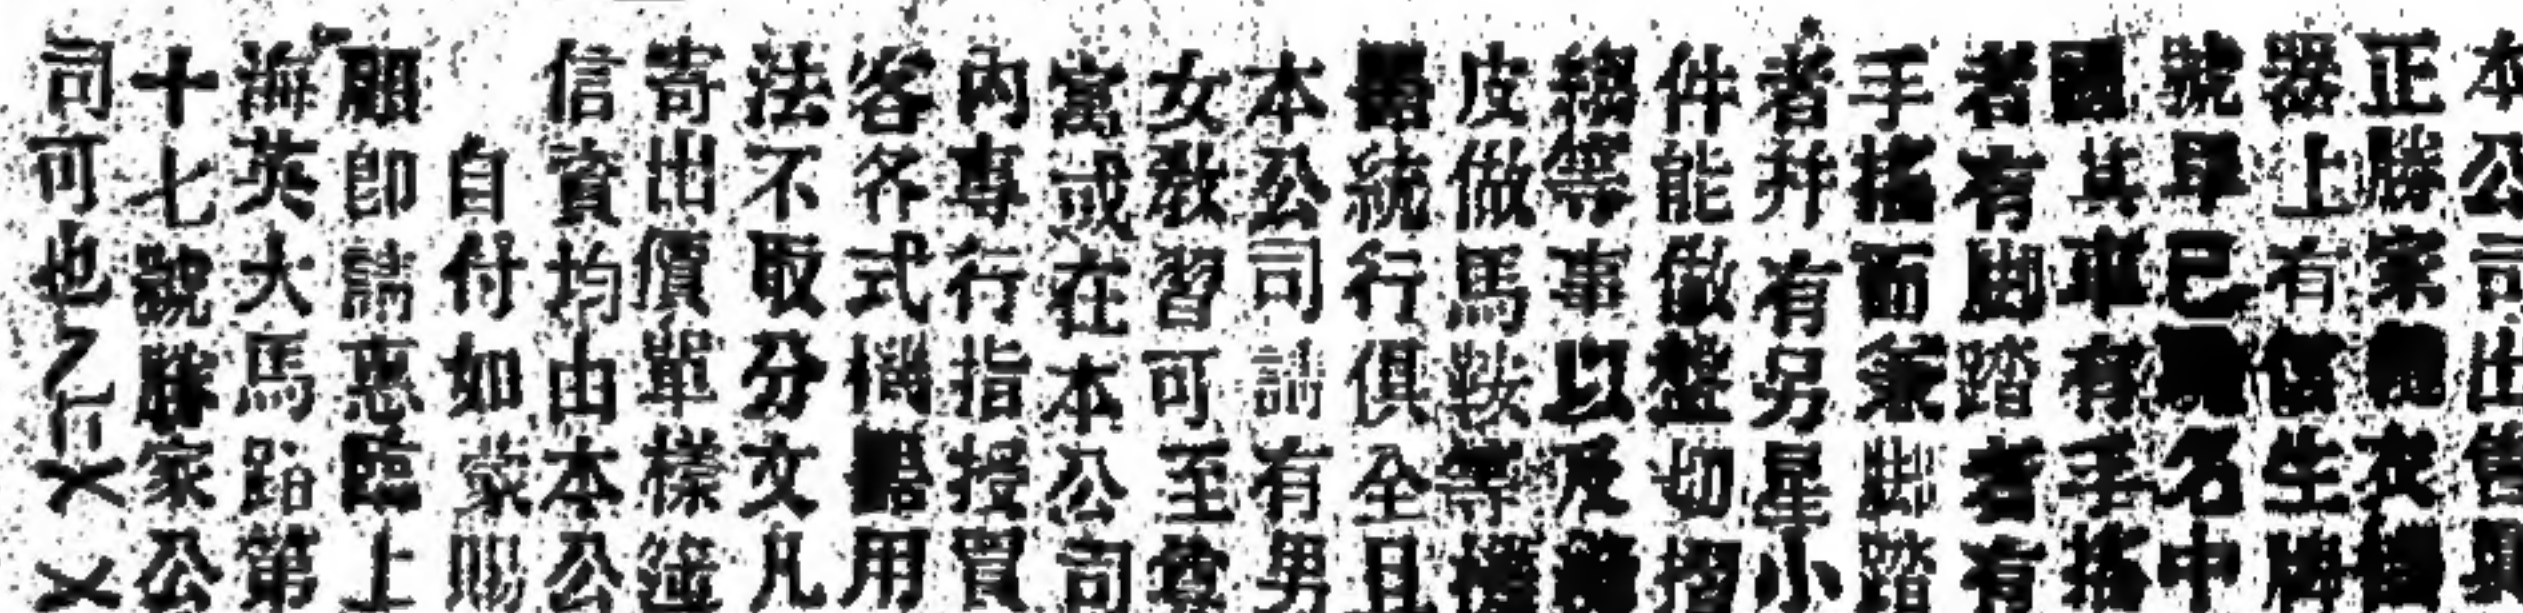 本公司出售
正勝家衣
器上有生牌
號早已名中
其車有手搖
者有脚踏者有
手搖而兼踏
者并有另星小
件能做盤切摺
等事以及
皮做馬鞍等機
器統行俱全且
本公司請有男
女教習可至尊
寓或在本公司
內專行指授買
客各式機器用
法不取分文凡
寄出價單樣
信資均由本公
自付如蒙賜
顧即請惠臨上
海英大馬路第
十七號勝家公
司可也